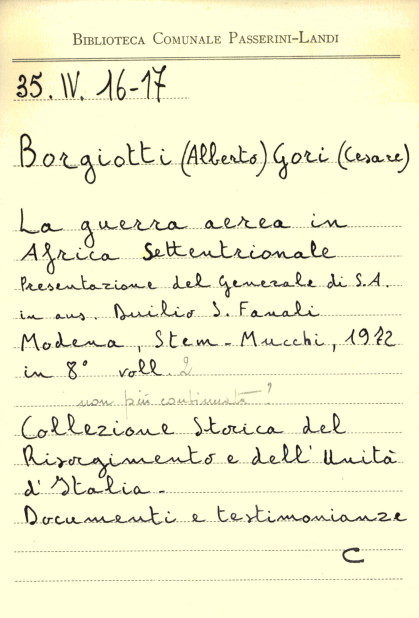 BIBLIOTECA COMUNALE PASSERINI-LANDI
35. IV. 16-17
Borgiotti (Alberto) Gori (Cesare)
La guerra aerea in
Africa Settentrionale
Presentazione del Generale di S.A.
in aus. Duilio S. Fanali
Modena, Stem-Mucchi, 1972
in 8° voll. 2
non più continuata?
Collezione Storica del
Risorgimento e dell'Unità
d'Italia -
Documenti e testimonianze
C